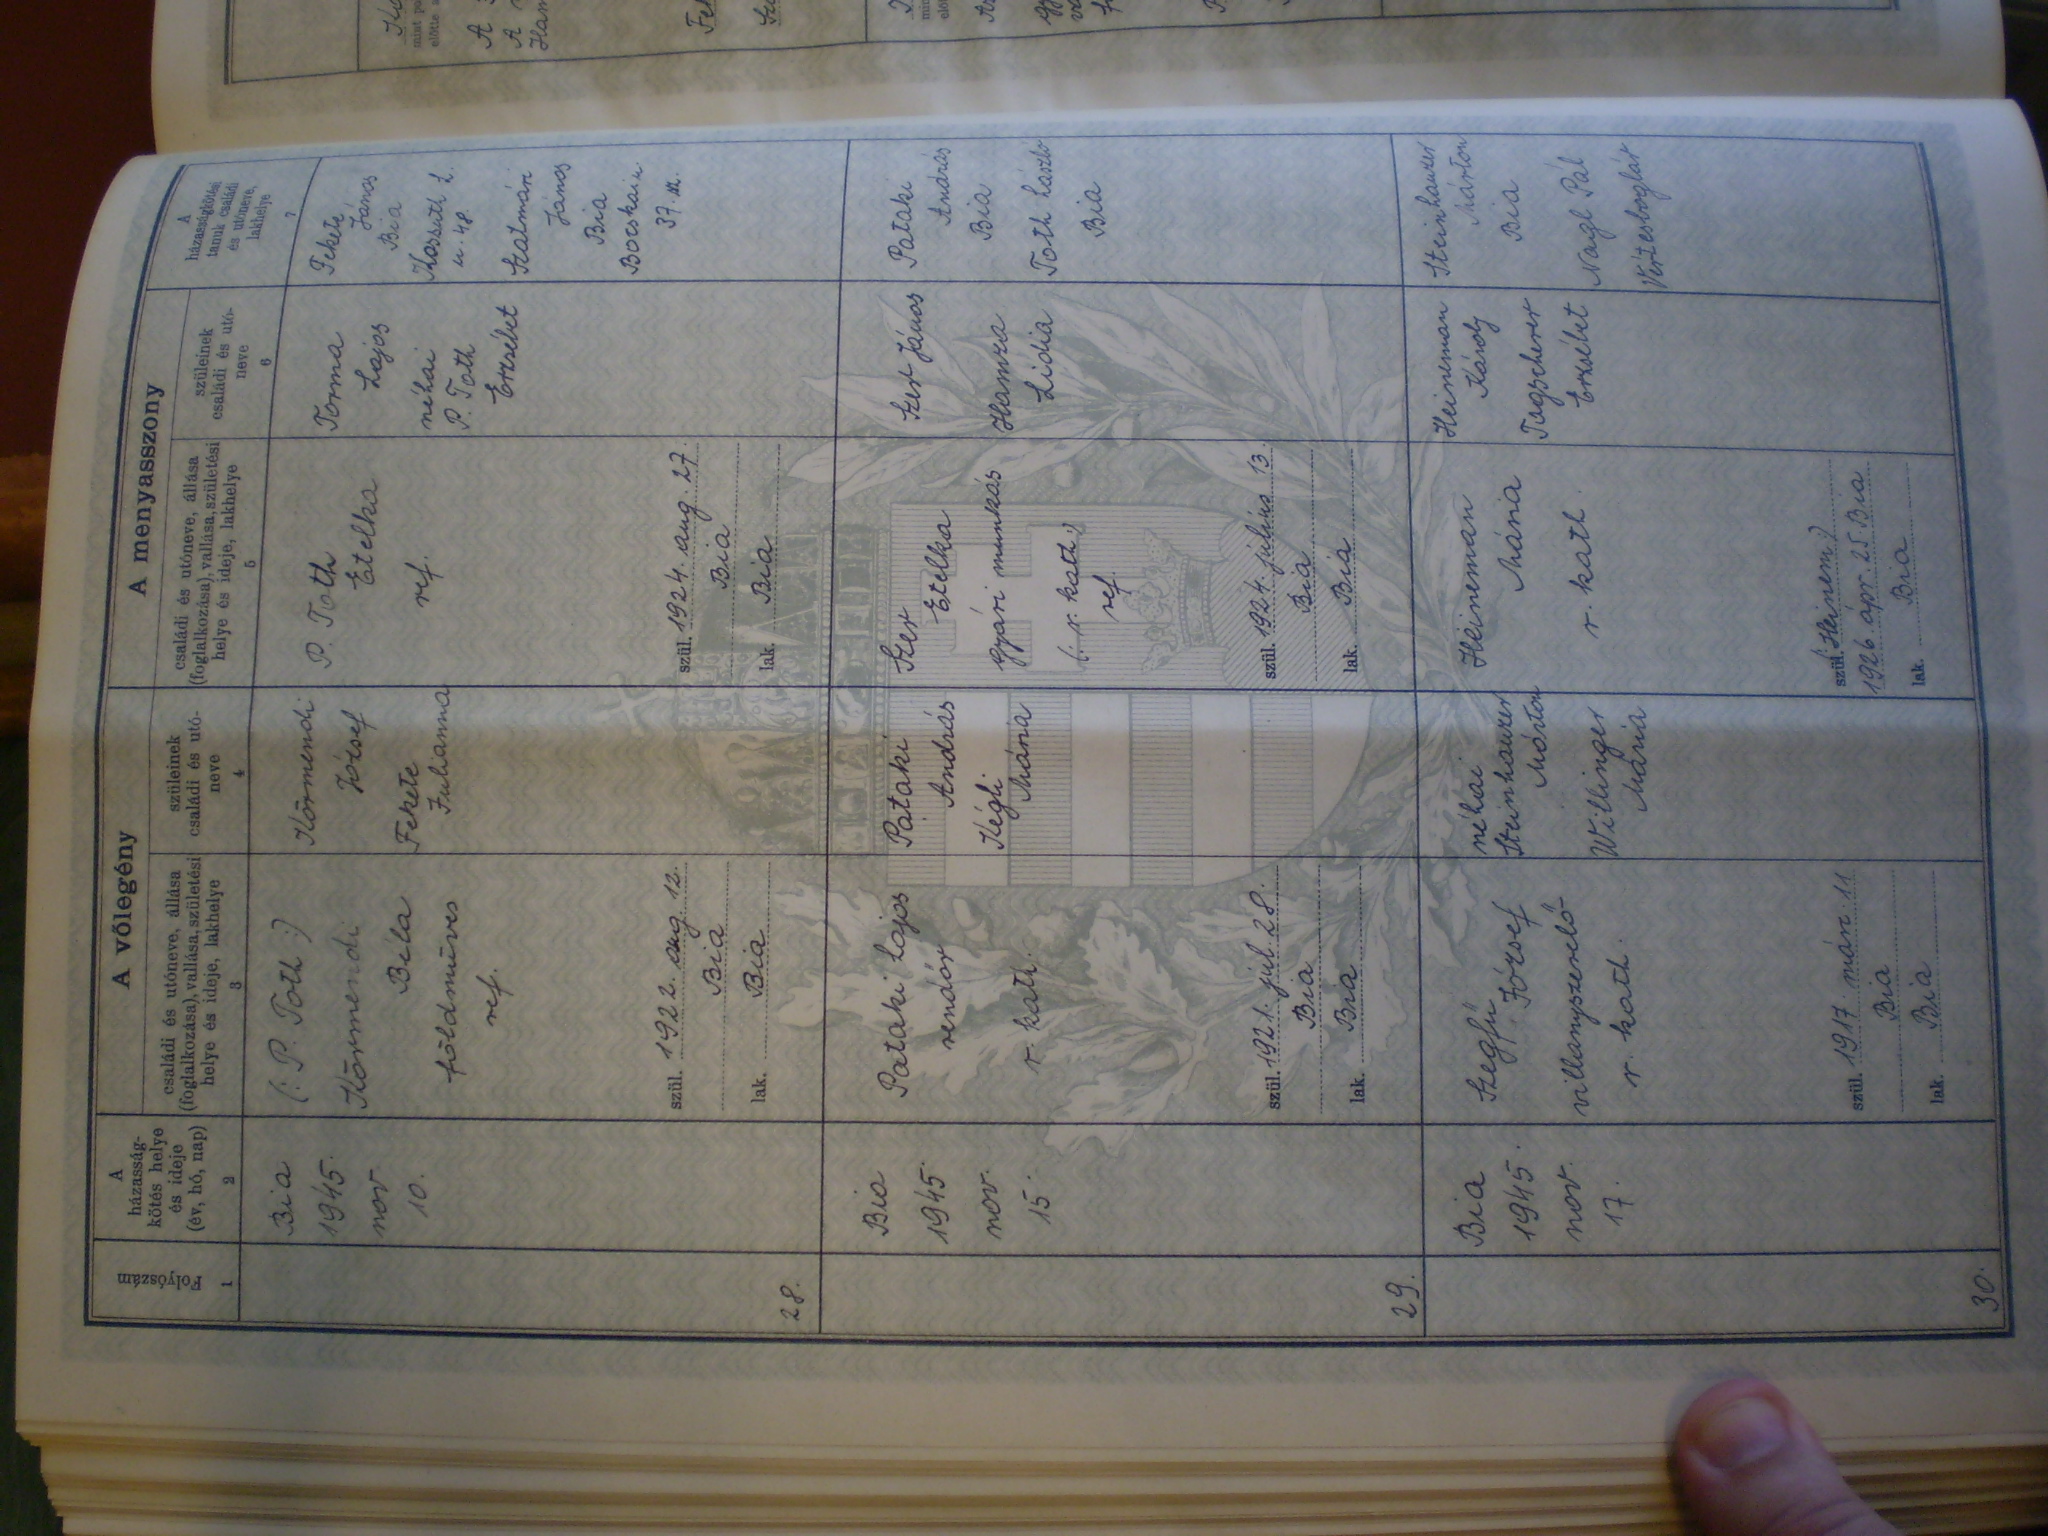 A vőlegény
A menyasszony
Folyószám
1
A
házasság-
kötés helye
és ideje
(év, hó, nap)
2
családi és utóneve, állása
(foglalkozása), vallása, születési
helye és ideje, lakhelye
3
szüleinek
családi és utó-
neve
4
családi és utóneve, állása
(foglalkozása), vallása, születési
helye és ideje, lakhelye
5
szüleinek
családi és utó-
neve
6
A
házasságkötési
tanuk családi
és utóneve,
lakhelye
7
28.
Bia
1945.
nov
10.
(: P. Toth :)
Körmendi
Béla
földműves
ref.
szül. 1922. aug 12.
Bia
lak. Bia
Körmendi
József
Fekete
Julianna
P. Toth
Etelka
ref.
szül. 1924. aug. 27.
Bia
lak. Bia
Torma
Lajos
néhai
P. Toth
Erzsébet
Fekete
János
Bia
Kossuth L.
u. 48.
Szatmári
János
Bia
Bocskai u.
37.
29.
Bia
1945.
nov.
15.
Pataki Lajos
rendőr
r. kath.
szül. 1921. jul. 28.
Bia
lak. Bia
Pataki
András
Kégli
Mária
Szer
Etelka
gyári munkás
(: r. kath :)
ref.
szül. 1924. julius 13.
Bia
lak. Bia
Szer János
Hamza
Lidia
Pataki
András
Bia
Toth László
Bia
30.
Bia
1945.
nov.
17.
Szegfű
József
villanyszerelő
r. kath.
szül. 1917. márc. 11
Bia
lak. Bia
néhai
Steinhauzer
Márton
Willinger
Mária
Heineman
Mária
r. kath.
szül. (: Heinem :)
1926 ápr. 25 Bia
lak. Bia
Heineman
Károly
Tagscherer
Erzsébet
Steinhauzer
Márton
Bia
Nagl Pál
Vértesboglár